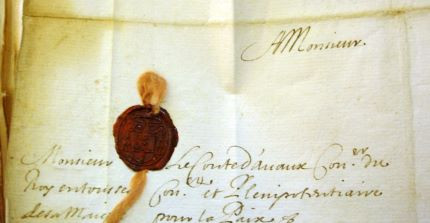 AMonsieur.
Monsieur Le Conte d'auaux Con.er du
Roy en tous ses Con.els et Plenipotentiaire
de sa Maie
pour la Paix &